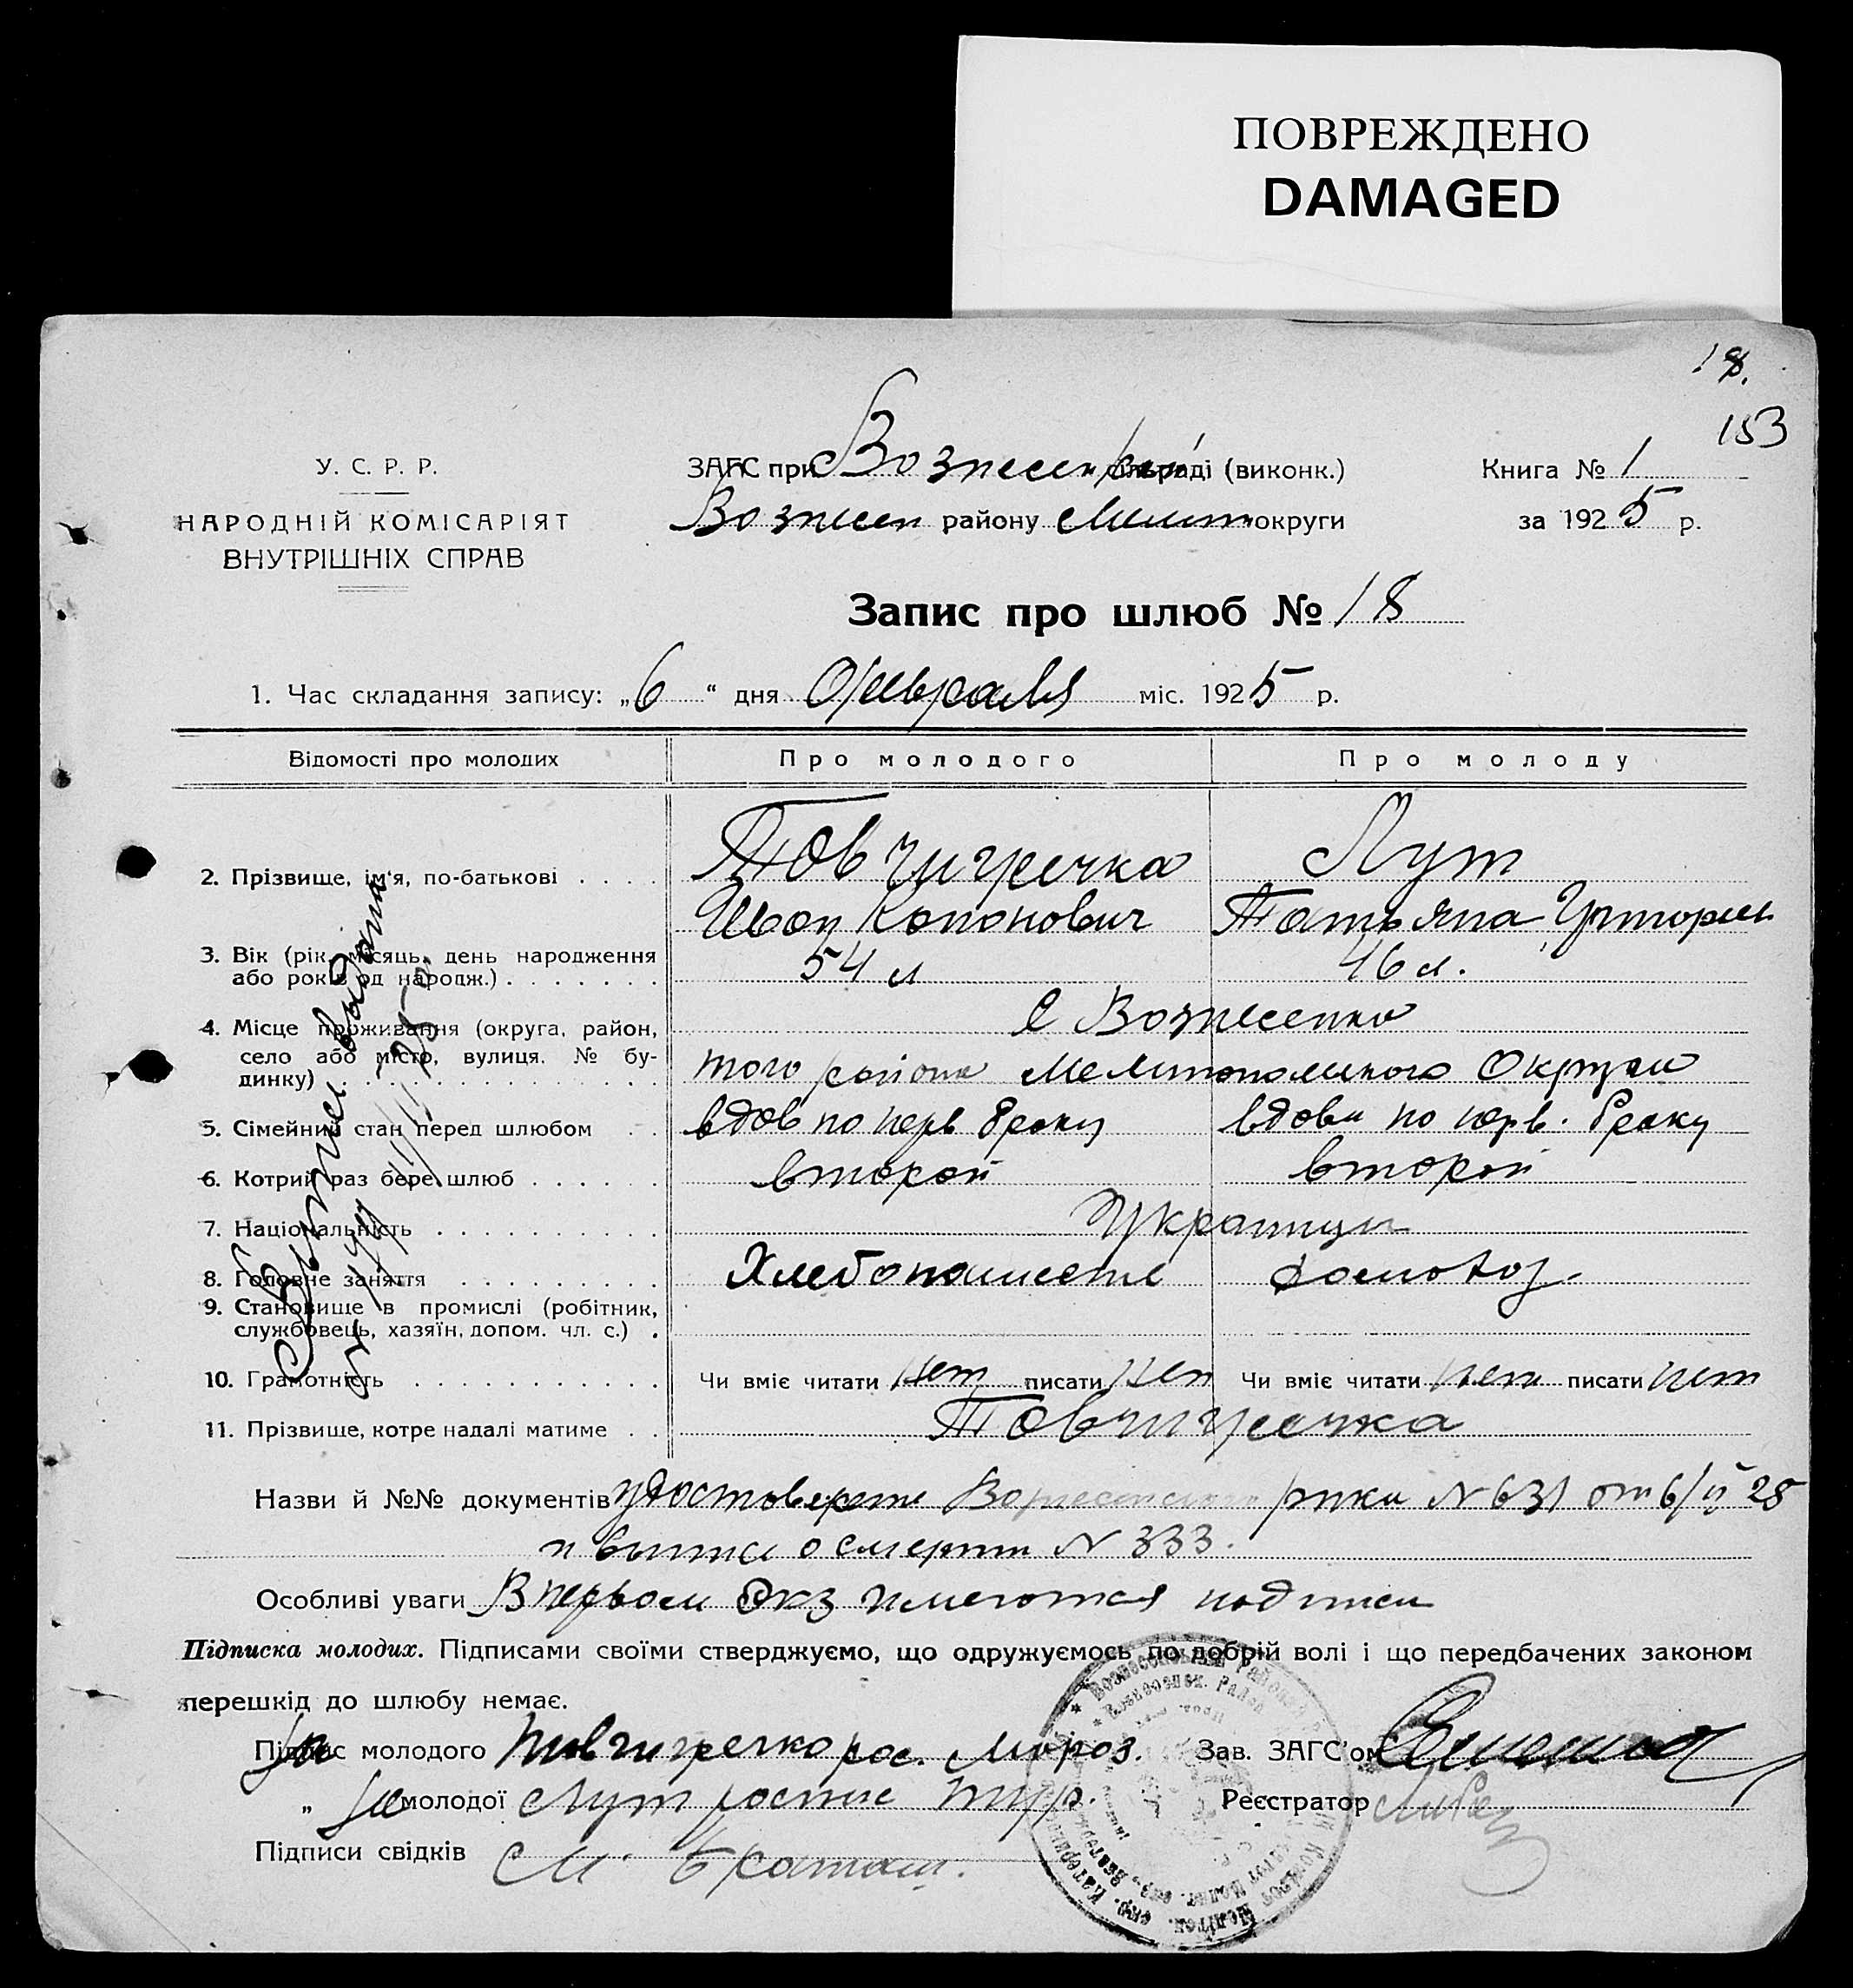 ПОВРЕЖДЕНО
DAMAGED
18.
153
У. С. Р. Р.
НАРОДНІЙ КОМІСАРІЯТ
ВНУТРІШНІХ СПРАВ
ЗАГС при Вознесен сільраді (виконк.)
Вознесен району Мелит округи
Книга № 1
за 1925 р.
Запис про шлюб № 18
1. Час складання запису: „6“ дня февраля міс. 1925 р.
Відомості про молодих Про молодого Про молоду
2. Прізвище, ім'я, по-батькові . . . . Товчигречка Лут
Иван Кононович Татьяна
3. Вік (рік, місяць, день народження
або років од народж.) . . . . . . . 54 л 46 л.
4. Місце проживання (округа, район, С Вознесенка
село або місто, вулиця. № бу-
динку) . . . . . . . . . . . . . того района Мелитопольского Округи
5. Сімейний стан перед шлюбом . . вдов по перв браку вдова по перв. браку
6. Котрий раз бере шлюб . . . . . . второй второй
7. Національність . . . . . . . . . . Украинцы
8. Головне заняття . . . . . . . . . Хлебопашество домохоз.
9. Становище в промислі (робітник,
службовець, хазяїн, допом. чл. с.) .
10. Грамотність . . . . . . . . . . . Чи вміє читати нет писати нет Чи вміє читати нет писати нет
11. Прізвище, котре надалі матиме . . Товчигречка
Выпись выдана
Назви й №№ документів удостоверение Вознесенского рика N 631 от 6/II 25
и выписи о смерти N 333.
Особливі уваги В первом Экз имеются подписи
Підписка молодих. Підписами своїми стверджуємо, що одружуємось по добрій волі і що передбачених законом
перешкід до шлюбу немає.
Підпис молодого За Товчигречко рос. Мороз. Зав. ЗАГС'ом
„ молодої За Лут роспис Реєстратор
Підписи свідків М.